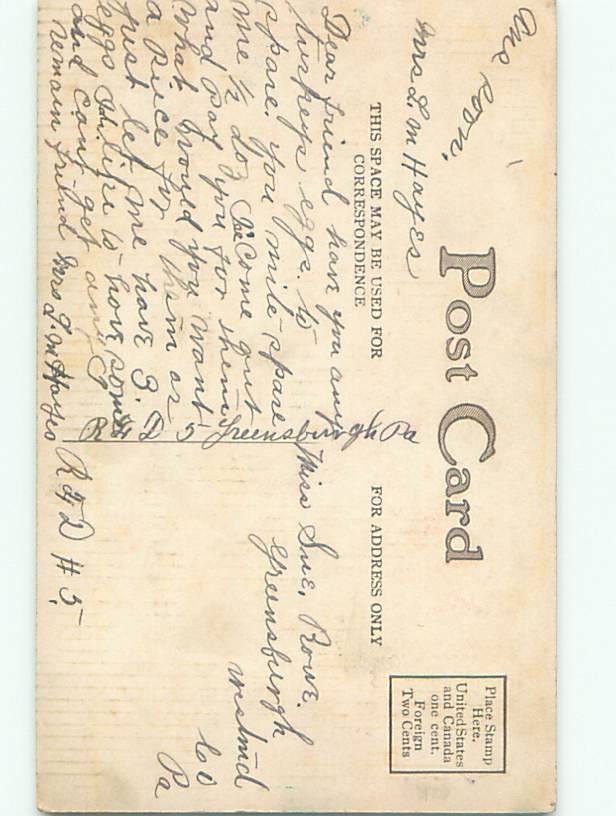 Ans soon.
Mrs L. M Hayes
Post Card
THIS SPACE MAY BE USED FOR
CORRESPONDENCE
FOR ADDRESS ONLY
Place Stamp
Here.
United States
and Canada
one cent.
Foreign
Two Cents
Dear friend have you any
turkeys eggs to
spare. you mite spare
me 1/2 doz Ile come out
and pay you for them
what would you want
a piece for them or
just let me have 3.
eggs Id like to have some
and cant get any
remain friend Mrs L. M Hayes R F D # 5
R F D 5 Greensburgh Pa
Miss Sue. Rowe.
Greensburgh
westmd
Co
Pa